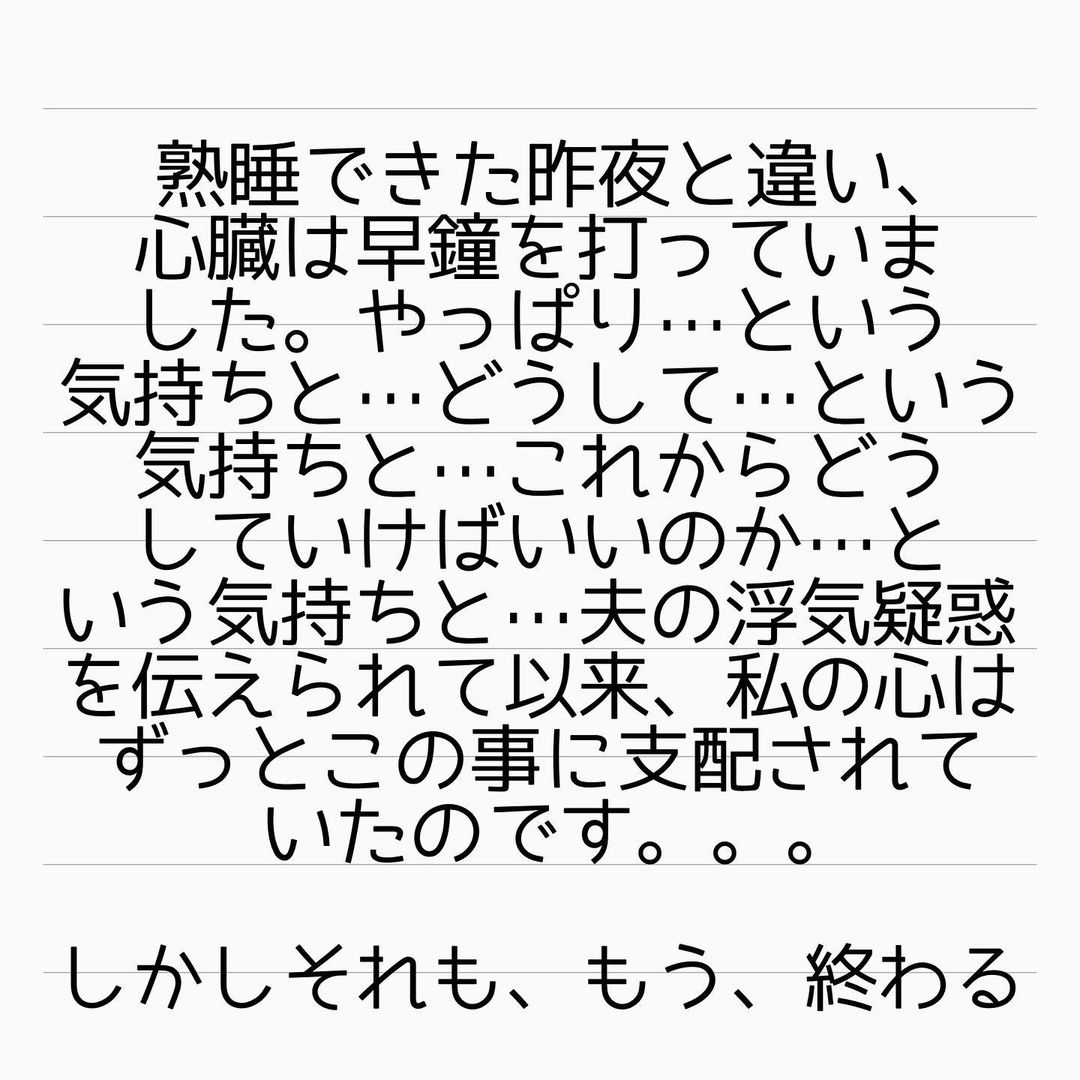 熟睡できた昨夜と違い、
心臓は早鐘を打っていま
した。やっぱり…という
気持ちと…どうして…という
気持ちと…これからどう
していけばいいのか…と
いう気持ちと…夫の浮気疑惑
を伝えられて以来、私の心は
ずっとこの事に支配されて
いたのです。。。
しかしそれも、もう、終わる